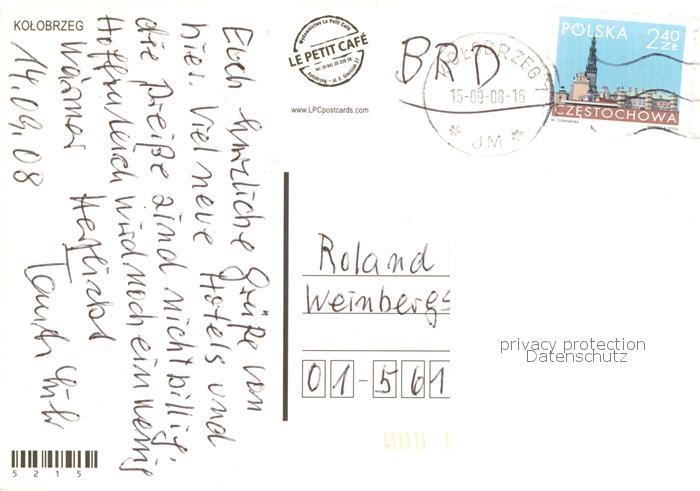 KOŁOBRZEG
14.09.08
Euch herzliche Grüße von
hier. Viel neue Hotels und
die Preiße sind nicht billig.
Hoffentlich wird noch ein wenig
wärmer Herzlichst
Wydawnictwo Le Petit Café
LE PETIT CAFÉ
www.LPCpostcards.com
BRD
KOŁOBRZEG 1
15-09-08-16
* JM *
POLSKA
2,40 ZŁ
CZĘSTOCHOWA
Roland
Weinbergs
01-561
privacy protection
Datenschutz
5215